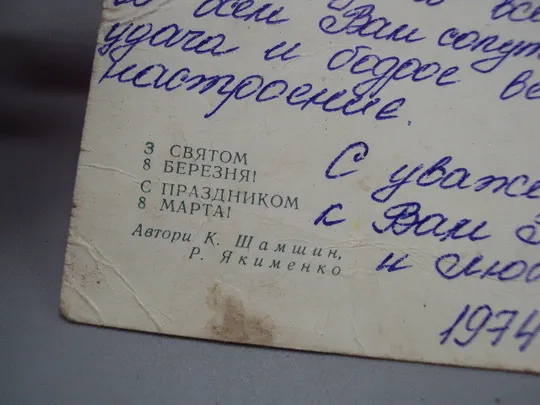 всем Вам сопут
удача и бодрое ве
настроение.
З СВЯТОМ
8 БЕРЕЗНЯ!
С ПРАЗДНИКОМ
8 МАРТА!
Автори К. Шамшин,
Р. Якименко
С уваже
к Вам
и люб
1974